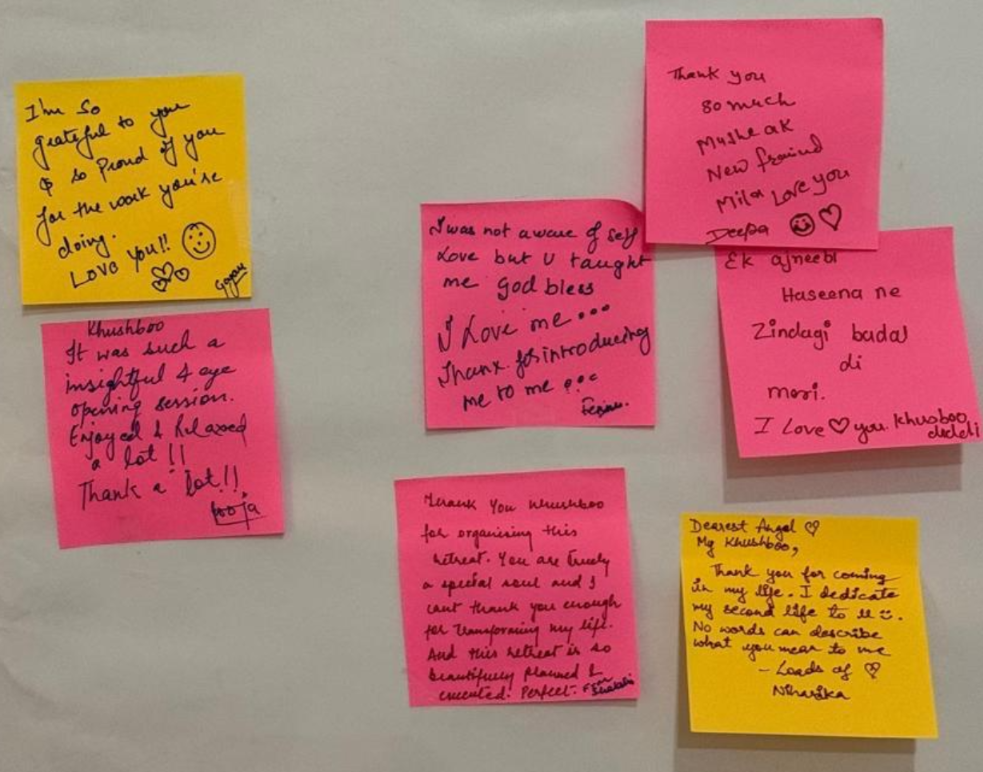 I'm so
grateful to you
& so Proud of you
for the work you're
doing.
Love you!!
Khushboo
It was such a
insightful & eye
opening session.
Enjoyed & Relaxed
a lot !!
Thank a lot!!
Pooja
I was not aware of self
Love but U taught
me god bless
I Love me...
Thanx for introducing
me to me ...
Thank you
so much
Mujhe ak
New fraind
Mila Love you
Deepa
Ek ajneebi
Haseena ne
Zindagi badal
di
meri.
I Love you. Khusboo
diddi
Thank You Khushboo
for organising this
retreat. You are truely
a special soul and I
cant thank you enough
for transforming my life.
And this retreat is so
beautifully planned &
executed. Perfect. From
Dearest Angel
My Khushboo,
Thank you for coming
in my life. I dedicate
my second life to u.
No words can describe
what you mean to me
- Loads of
Niharika